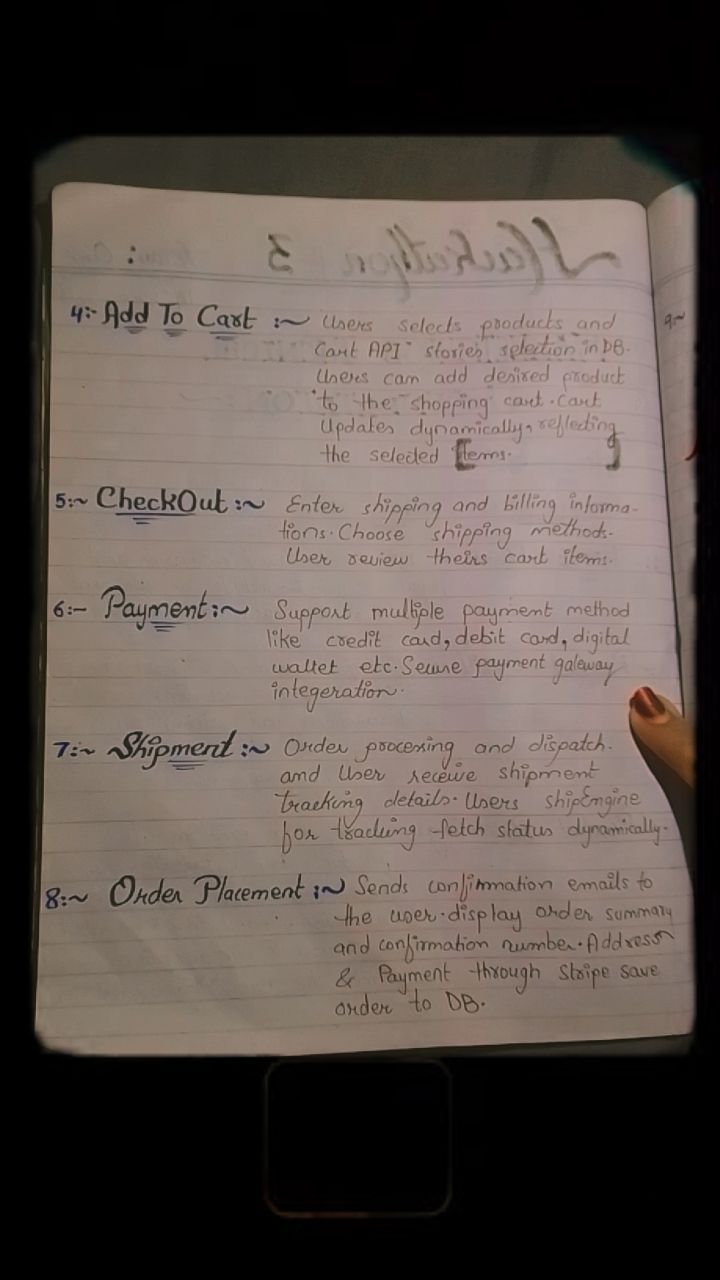 4:- Add To Cart :~ Users selects products and
Cart API stories selection in DB.
Users can add desired product
to the shopping cart. Cart
Updates dynamically, reflecting
the selected [Items.]
5:~ CheckOut :~ Enter shipping and billing informa-
tions. Choose shipping methods.
User review theirs cart items.
6:- Payment :~ Support multiple payment method
like credit card, debit card, digital
wallet etc. Secure payment gateway
integeration.
7:~ Shipment :~ Order processing and dispatch.
and User receive shipment
tracking details. Users shipEngine
for tracking fetch status dynamically.
8:~ Order Placement :~ Sends confirmation emails to
the user. display order summary
and confirmation number. Address
& Payment through Stripe save
order to DB.
9:~